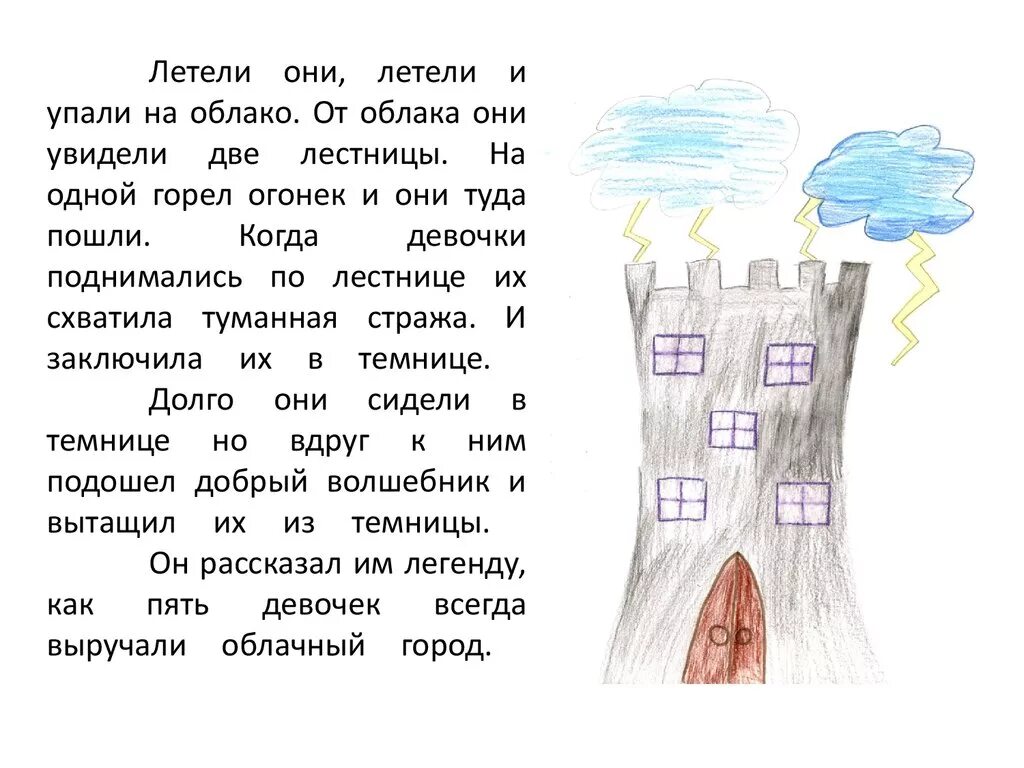 Летели они, летели и
упали на облако. От облака они
увидели две лестницы. На
одной горел огонек и они туда
пошли. Когда девочки
поднимались по лестнице их
схватила туманная стража. И
заключила их в темнице.
Долго они сидели в
темнице но вдруг к ним
подошел добрый волшебник и
вытащил их из темницы.
Он рассказал им легенду,
как пять девочек всегда
выручали облачный город.